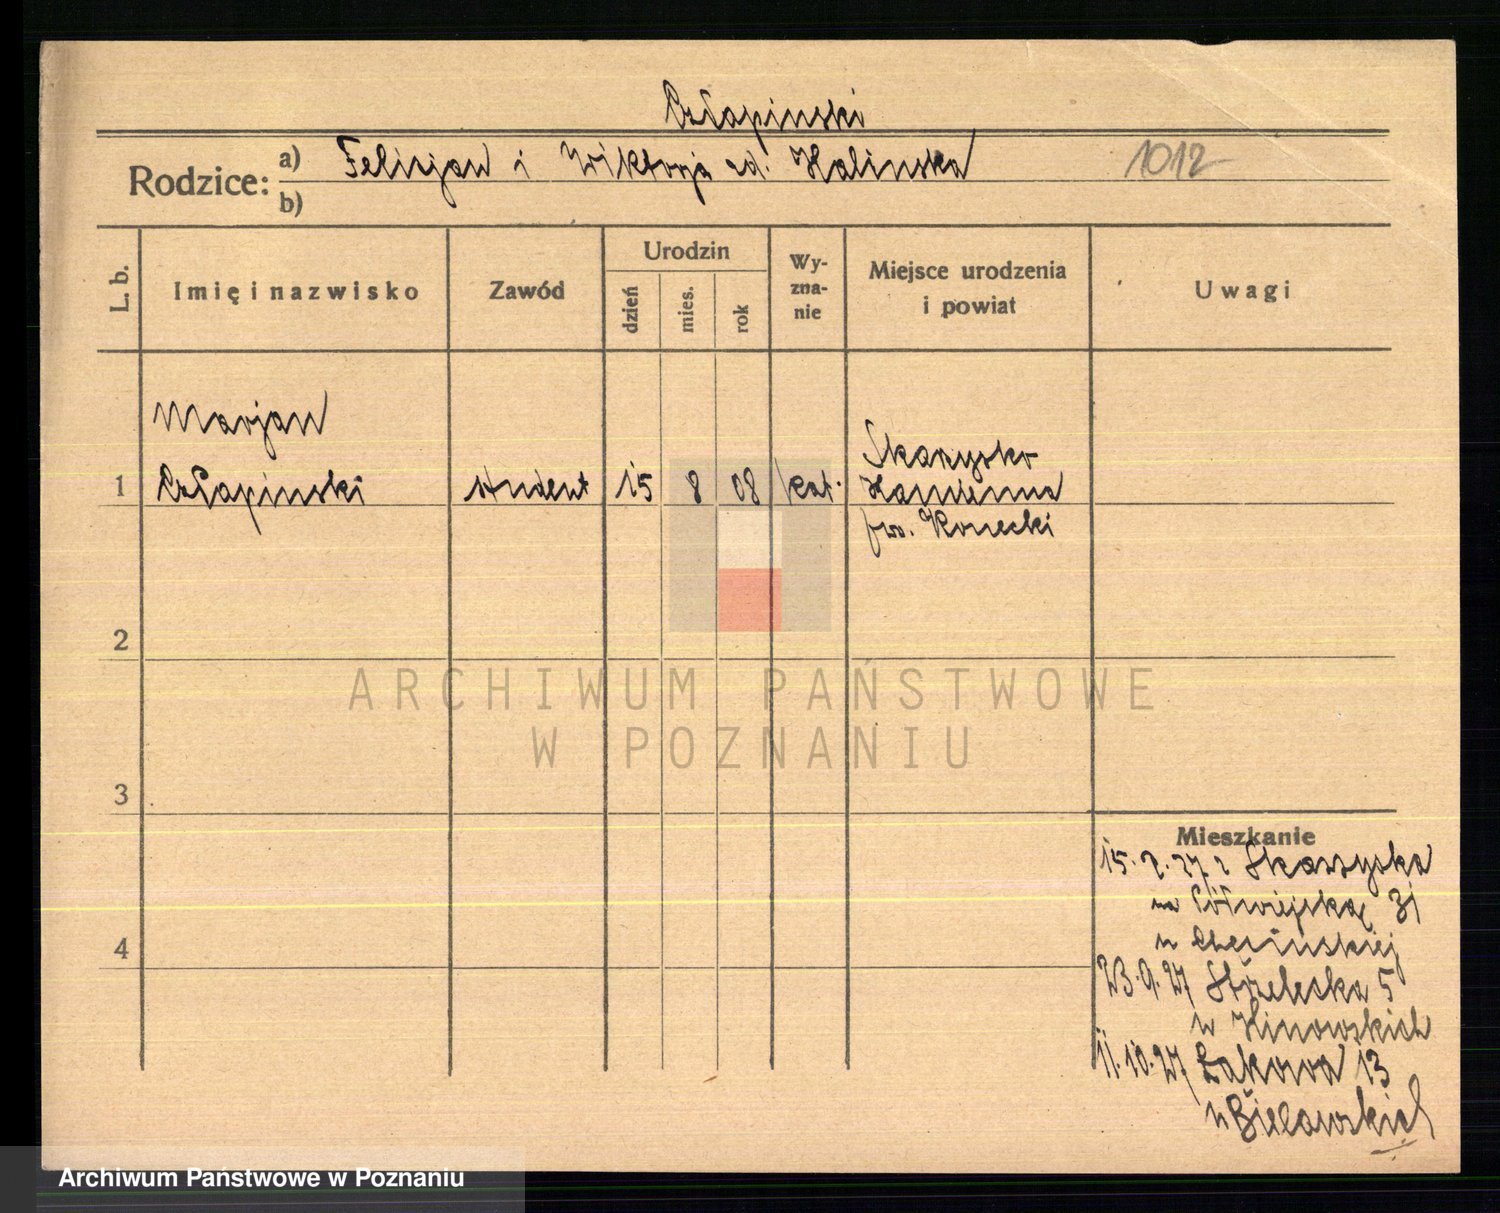 Człapinski
Rodzice: a) Felicjan i Wiktorja zd. Kalinska 1012
b)
L. b. Imię i nazwisko Zawód Urodzin dzień mies. rok Wy-zna-nie Miejsce urodzenia i powiat Uwagi
Marjan
1 Człapinski student 15 8 08 kat. Skarzysko
Kamienna
pw. Konecki
2
ARCHIWUM PAŃSTWOWE
W POZNANIU
3
Mieszkanie
15. 27 z Skarzyska
na Półwiejską 31
u Chęcińskiej
4
23.9.27 Strzelecka 5
u Kinowskich
11.10.27 Łąkowa 13
u Bielawskich
Archiwum Państwowe w Poznaniu